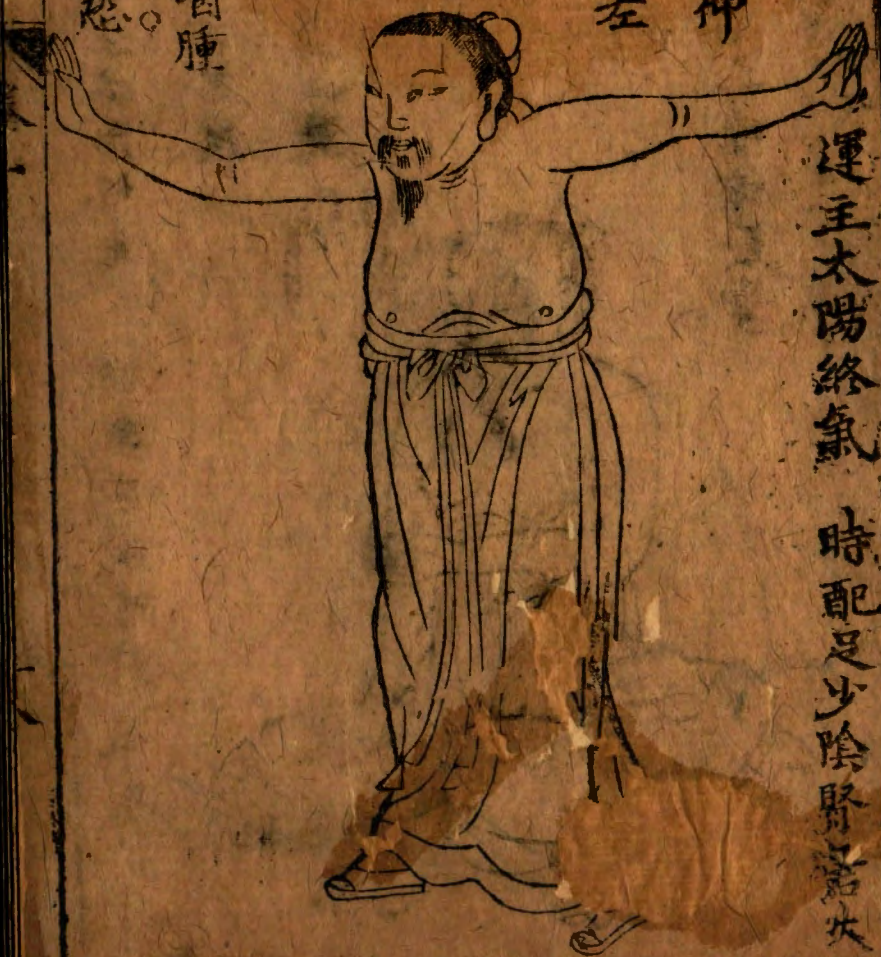 運主太陽終氣 時配足少陰腎君火
左
腫